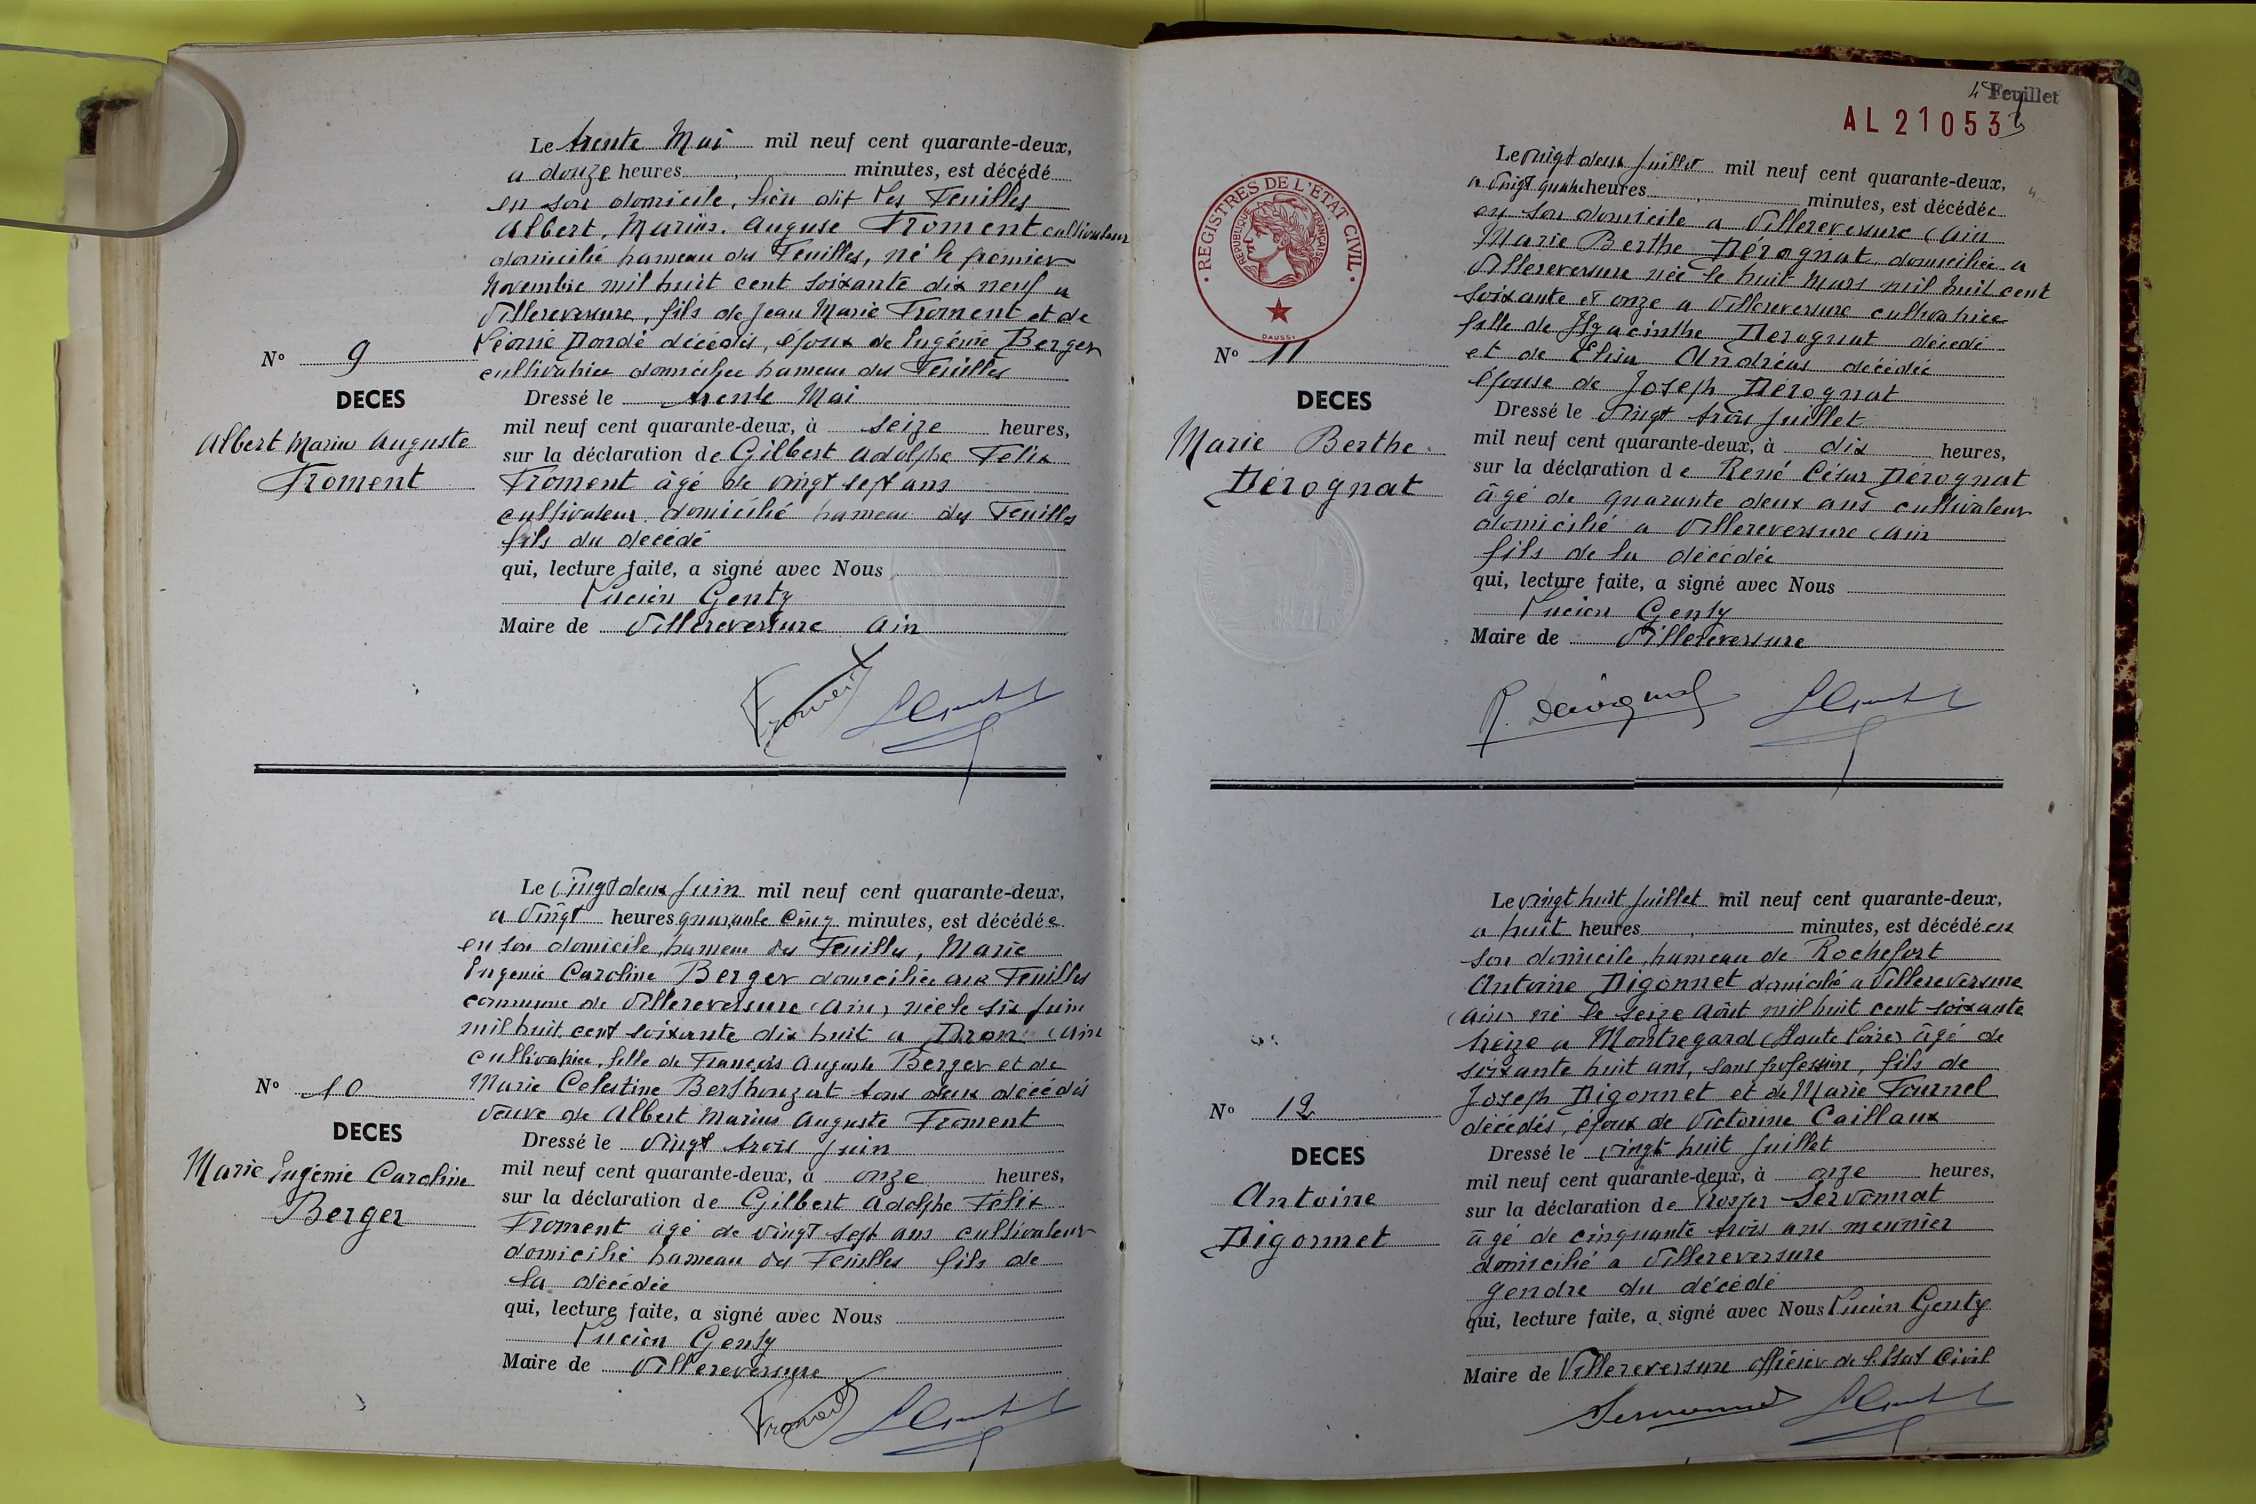 Le trente Mai mil neuf cent quarante-deux,
a douze heures minutes, est décédé
en son domicile, lieu dit les Feuilles
Albert, Marius, Auguste Froment cultivateur
domicilié hameau des Feuilles, né le premier
Novembre mil huit cent soixante dix neuf a
Villereversure, fils de Jean Marie Froment et de
décédés, époux de Eugénie Berger
cultivatrice domiciliée hameau des Feuilles
N° 9
DECES
Albert Marius Auguste
Froment
Dressé le trente Mai
mil neuf cent quarante-deux, à seize heures,
sur la déclaration de Gilbert Adolphe Félix
Froment âgé de vingt sept ans
cultivateur domicilié hameau des Feuilles
fils du décédé
qui, lecture faite, a signé avec Nous
Lucien Genty
Maire de Villereversure Ain
Froment
Le vingt deux Juin mil neuf cent quarante-deux,
a vingt heures quarante cinq minutes, est décédée
en son domicile, hameau des Feuilles, Marie
Eugénie Caroline Berger domiciliée aux Feuilles
commune de Villereversure (Ain) née le six Juin
mil huit cent soixante dix huit a Drom (Ain
cultivatrice, fille de François Auguste Berger et de
Marie Celestine tous deux décédés
veuve de Albert Marius Auguste Froment
N° 10
DECES
Marie Eugénie Caroline
Berger
Dressé le vingt trois Juin
mil neuf cent quarante-deux, à onze heures,
sur la déclaration de Gilbert Adolphe Félix
Froment âgé de vingt sept ans cultivateur
domicilié hameau des Feuilles fils de
la décédée
qui, lecture faite, a signé avec Nous
Lucien Genty
Maire de Villereversure
Froment
4e Feuillet
AL 21053
REGISTRES DE L'ETAT CIVIL
REPUBLIQUE FRANÇAISE
DAUSSI
Le vingt deux Juillet mil neuf cent quarante-deux,
a vingt quatre heures minutes, est décédée
en son domicile a Villereversure (Ain
Marie Berthe Dérognat domiciliée a
Villereversure née le huit Mars mil huit cent
soixante et onze a Villereversure cultivatrice
fille de Hyacinthe Dérognat décédé
et de Elisa Andréas décédée
épouse de Joseph Dérognat
N° 11
DECES
Marie Berthe
Dérognat
Dressé le vingt trois Juillet
mil neuf cent quarante-deux, à dix heures,
sur la déclaration de René César Dérognat
âgé de quarante deux ans cultivateur
domicilié a Villereversure (Ain
fils de la décédée
qui, lecture faite, a signé avec Nous
Lucien Genty
Maire de Villereversure
R. Dérognat
Le vingt huit Juillet mil neuf cent quarante-deux,
a huit heures minutes, est décédé en
son domicile, hameau de Rochefort
Antoine Digonnet domicilié a Villereversure
(Ain) né le seize Août mil huit cent soixante
treize a Montregard (Haute Loire) âgé de
soixante huit ans, sans profession, fils de
Joseph Digonnet et de Marie Fournel
décédés, époux de Victorine Caillaux
N° 12
DECES
Antoine
Digonnet
Dressé le vingt huit Juillet
mil neuf cent quarante-deux, à onze heures,
sur la déclaration de Servonnat
âgé de cinquante trois ans meunier
domicilié a Villereversure
gendre du décédé
qui, lecture faite, a signé avec Nous Lucien Genty
Maire de Villereversure officier de l'Etat Civil
Servonnat